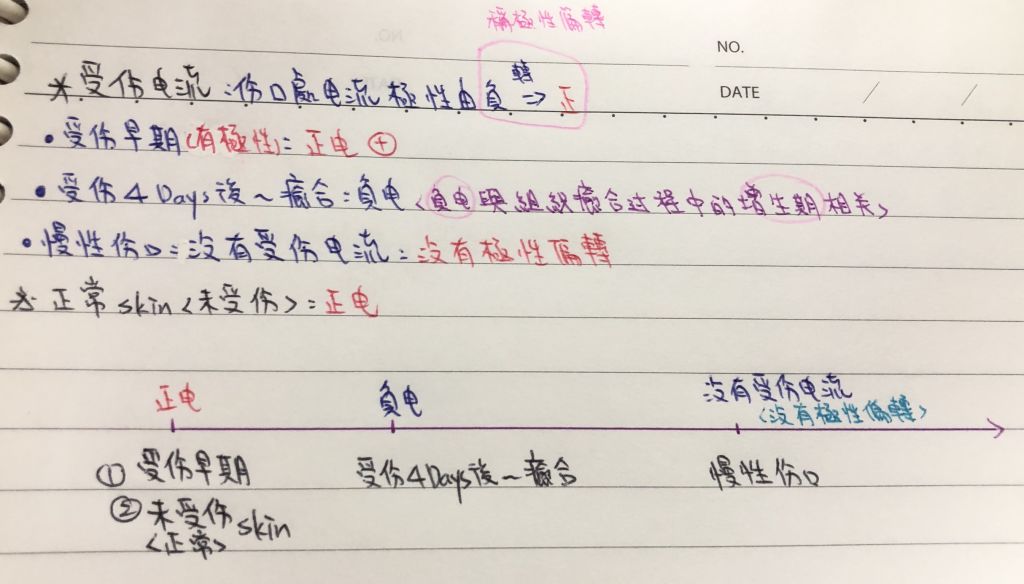 稱極性偏轉
NO.
DATE / /
* 受伤电流:伤口處电流極性由負 轉⇒ 正
• 受伤早期(有極性):正电 ⊕
• 受伤4 Days後~癒合:負电<負电與組織癒合过程中的增生期相关>
• 慢性伤口:沒有受伤电流:沒有極性偏轉
* 正常skin<未受伤>:正电
正电 負电 沒有受伤电流
<沒有極性偏轉>
① 受伤早期 受伤4Days後~癒合 慢性伤口
② 未受伤skin
<正常>